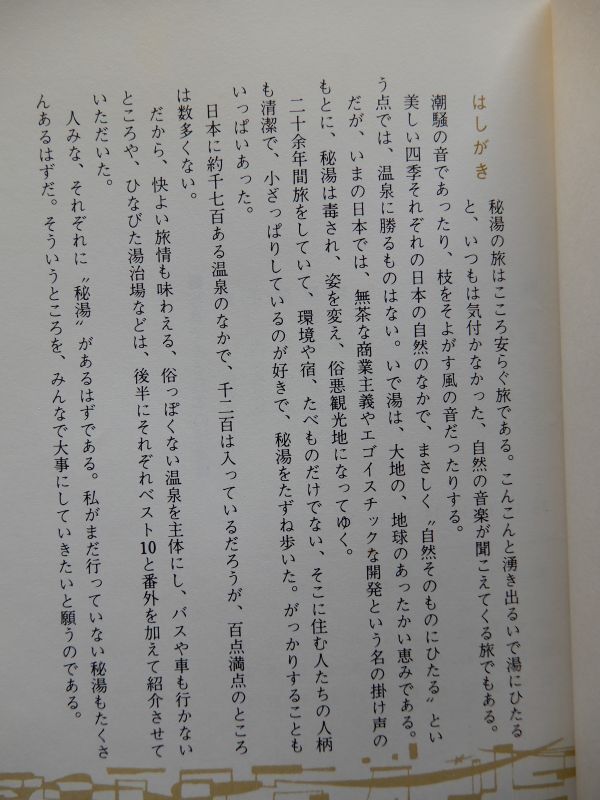 はしがき
秘湯の旅はこころ安らぐ旅である。こんこんと湧き出るいで湯にひたる
と、いつもは気付かなかった、自然の音楽が聞こえてくる旅でもある。
潮騒の音であったり、枝をそよがす風の音だったりする。
美しい四季それぞれの日本の自然のなかで、まさしく〝自然そのものにひたる〟とい
う点では、温泉に勝るものはない。いで湯は、大地の、地球のあったかい恵みである。
だが、いまの日本では、無茶な商業主義やエゴイスチックな開発という名の掛け声の
もとに、秘湯は毒され、姿を変え、俗悪観光地になってゆく。
二十余年間旅をしていて、環境や宿、たべものだけでない、そこに住む人たちの人柄
も清潔で、小ざっぱりしているのが好きで、秘湯をたずね歩いた。がっかりすることも
いっぱいあった。
日本に約千七百ある温泉のなかで、千二百は入っているだろうが、百点満点のところ
は数多くない。
だから、快よい旅情も味わえる、俗っぽくない温泉を主体にし、バスや車も行かない
ところや、ひなびた湯治場などは、後半にそれぞれベスト10と番外を加えて紹介させて
いただいた。
人みな、それぞれに〝秘湯〟があるはずである。私がまだ行っていない秘湯もたくさ
んあるはずだ。そういうところを、みんなで大事にしていきたいと願うのである。